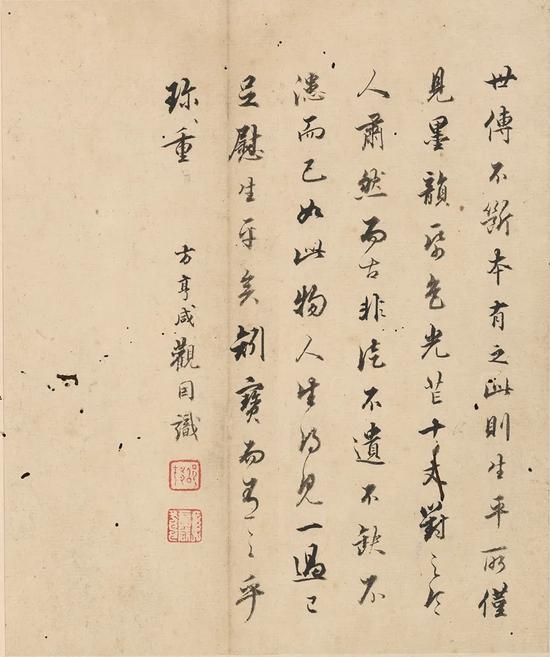 世傳不斷本有之此則生平所僅
見墨韻紙色光芒十丈對之令
人肅然而古非徒不遺不缺不
漶而已如此物人生得見一過已
足慰生平矣矧寶而有之乎
珍、重
方亨咸觀因識